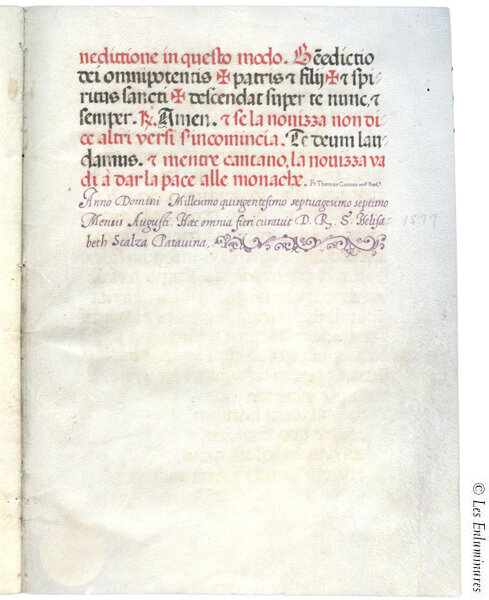 nedittione in questo modo. Bñedictio
dei omnipotentis ✠ patris & filij ✠ & spi
ritus sancti ✠ descendat super te nunc, &
semper. ℟. Amen. & se la novizza non di
ce altri versi s'incomincia. Te deum lau
damus. & mentre cantano, la novizza va
di à dar la pace alle monache. Fr Thomas
Anno Domini Millesimo quingentesimo septuagesimo septimo
Mensis Augusti. Hæc omnia fieri curavit D. R. S. Helisa
beth Scalza Patavina.
© Les Enluminures